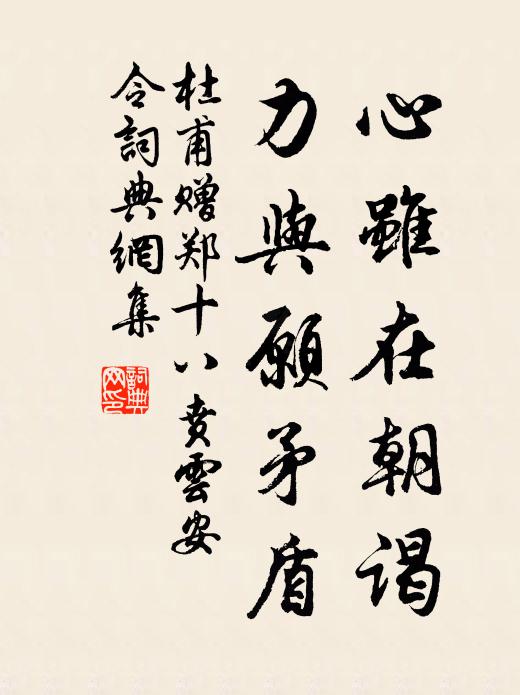 心雖在朝謁
力與願矛盾
杜甫赠郑十八賁雲安
令詞典網集
詞典网印